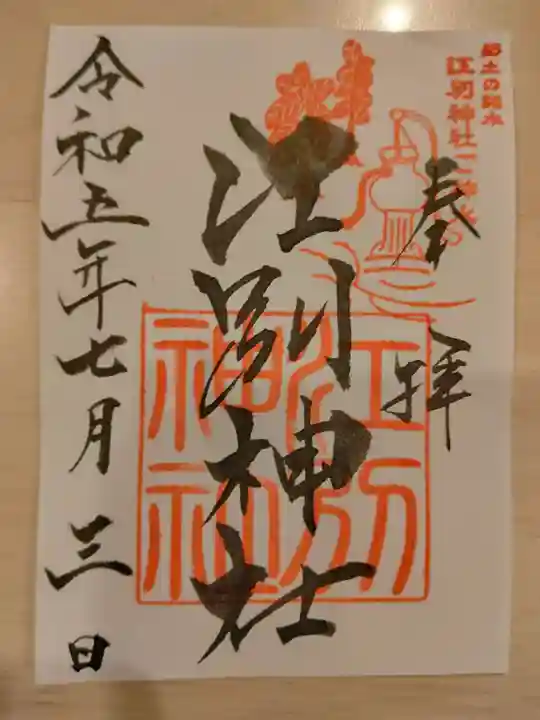 郷土の名水
江別神社
奉拝
江別神社
江別神社
令和五年七月三日